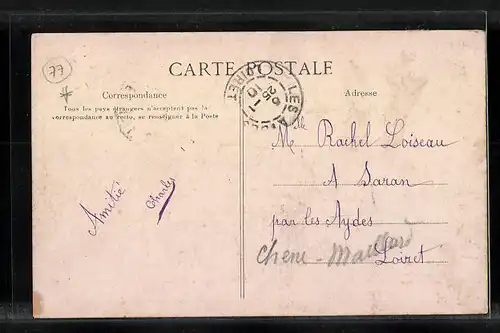 77
CARTE POSTALE
Correspondance
Tous les pays étrangers n'acceptent pas la
correspondance au recto, se renseigner à la Poste
Adresse
LOIRET
Mlle Rachel Loiseau
A Saran
par les Aydes
Loiret
Chene - Maillard
Amitié
Charles